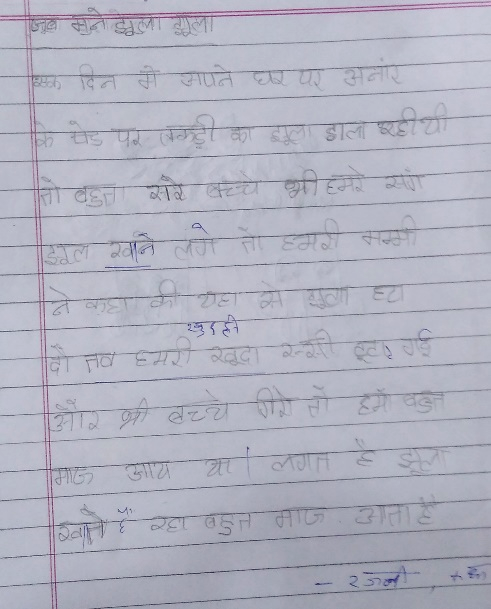 जब मैने झुला झुला
एक दिन में अपने घर पर अनार
के पेड पर लकड़ी का झुला डाला रही थी
तो बहुत सारे बच्चे भी हमरे संग
झुल खाने लगे तो हमरी मम्मी
ने कहा की यहा से झुला हटा
खुद ही
दो तब हमरी खुदा रस्सी टुट गई
और भी बच्चे गिरे तो हमे बहुत
माज आय था। लगत है झुला
खाते हैं रहा बहुत माज आता है
- रजनी,